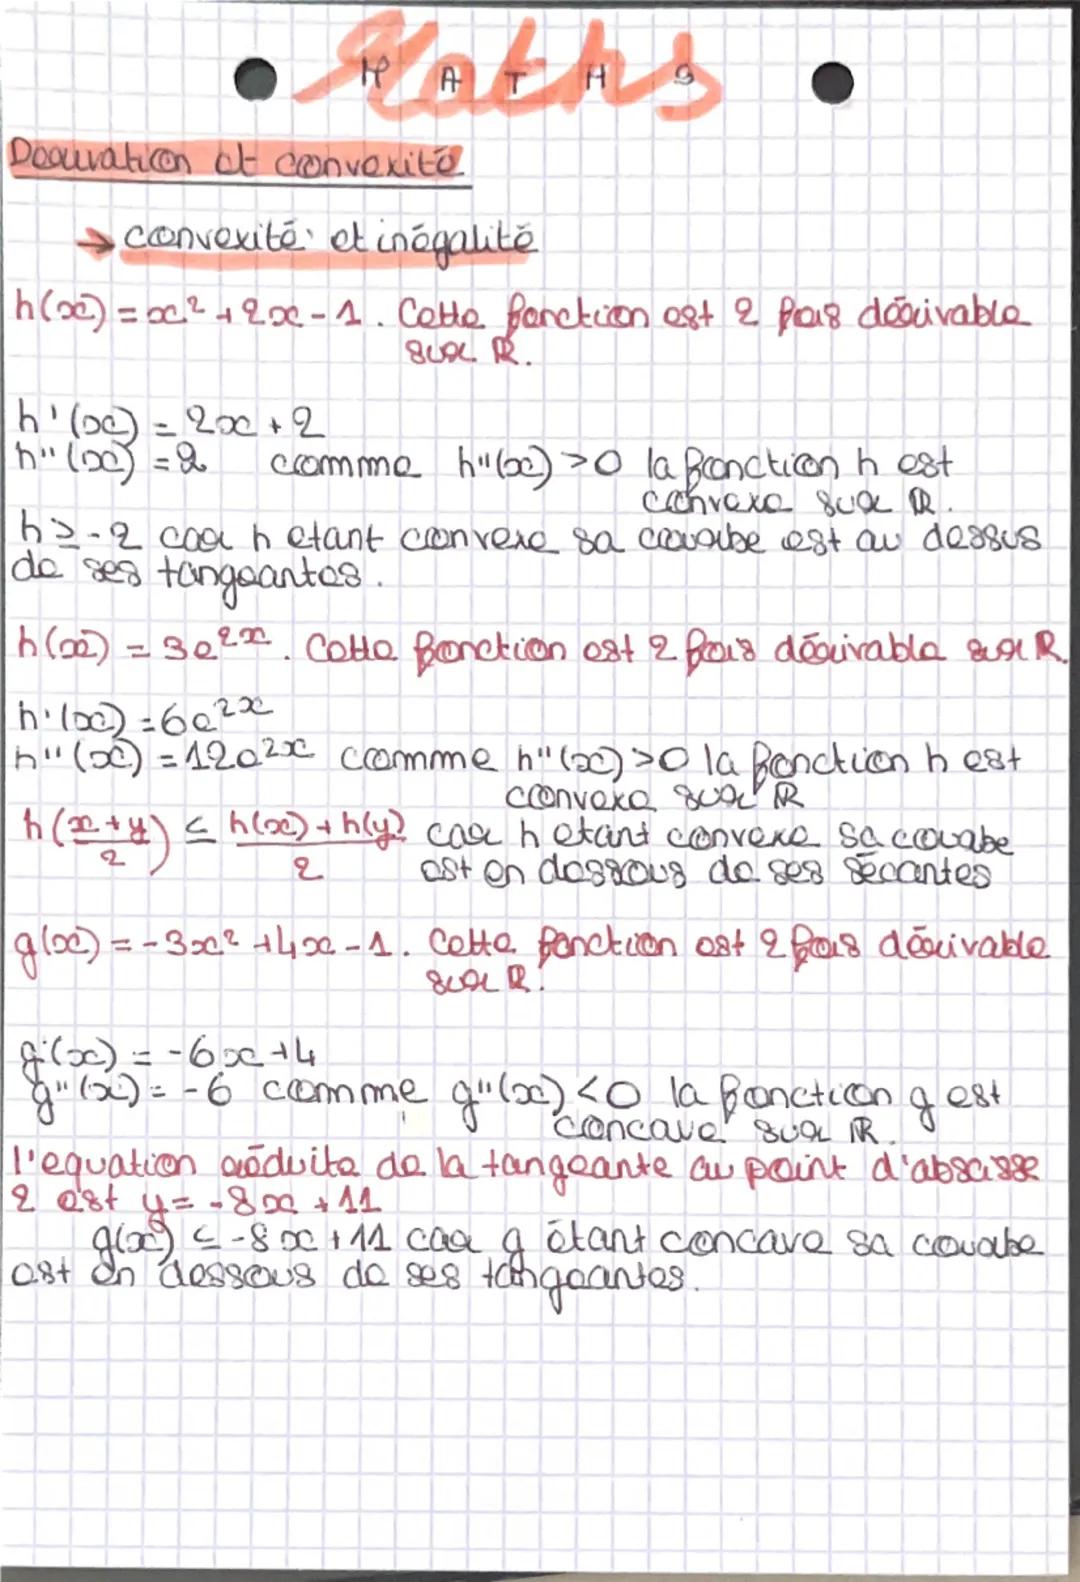 Maths
M A T H S
Dérivation et convexité
→ convexité et inégalité
h(x) = x² + 2x - 1. Cette fonction est 2 fois dérivable
sur ℝ.
h'(x) = 2x + 2
h''(x) = 2 comme h''(x) > 0 la fonction h est
convexe sur ℝ.
h ≥ -2 car h etant convexe sa courbe est au dessus
de ses tangeantes.
h(x) = 3e²ˣ. Cette fonction est 2 fois dérivable sur ℝ.
h'(x) = 6e²ˣ
h''(x) = 12e²ˣ comme h''(x) > 0 la fonction h est
convexe sur ℝ
h((x+y)/2) ≤ (h(x)+h(y))/2 car h etant convexe sa courbe
est en dessous de ses sécantes
g(x) = -3x² + 4x - 1. Cette fonction est 2 fois dérivable
sur ℝ.
g'(x) = -6x + 4
g''(x) = -6 comme g''(x) < 0 la fonction g est
concave sur ℝ.
l'equation réduite de la tangeante au point d'absisse
2 est y = -8x + 11
g(x) ≤ -8x + 11 car g étant concave sa courbe
est en dessous de ses tangeantes.